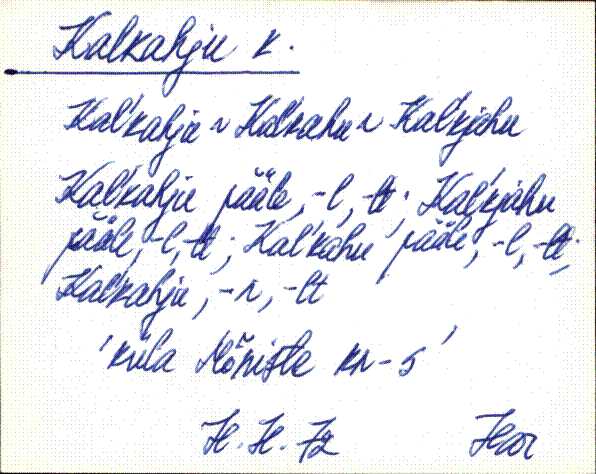 Kalkahju k.
Kal'kahju ~ Kal'kahu ~ Kal'kjahu
Kal'kahju pääle, -l, -lt; Kal'kjahu
pääle, -l, -lt; Kal'kahu pääle, -l, -lt;
Kal'kahju, -n, -lt
'küla Mõniste kn-s'
H. H. 72 Har